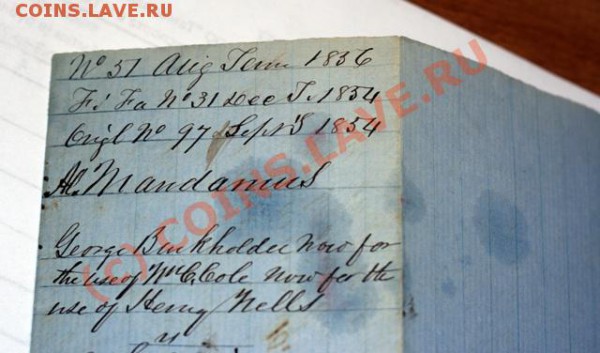 COINS.LAVE.RU
No 51 Aug Term 1856
Fi Fa No 31 Dec T. 1854
Origl No 97 Sept S 1854
Al. Mandamus
George Burkholder now for
the use of Wm C. Cole now for the
use of Henry Wells
v
(c) COINS.LAVE.RU
COINS.LAVE.RU